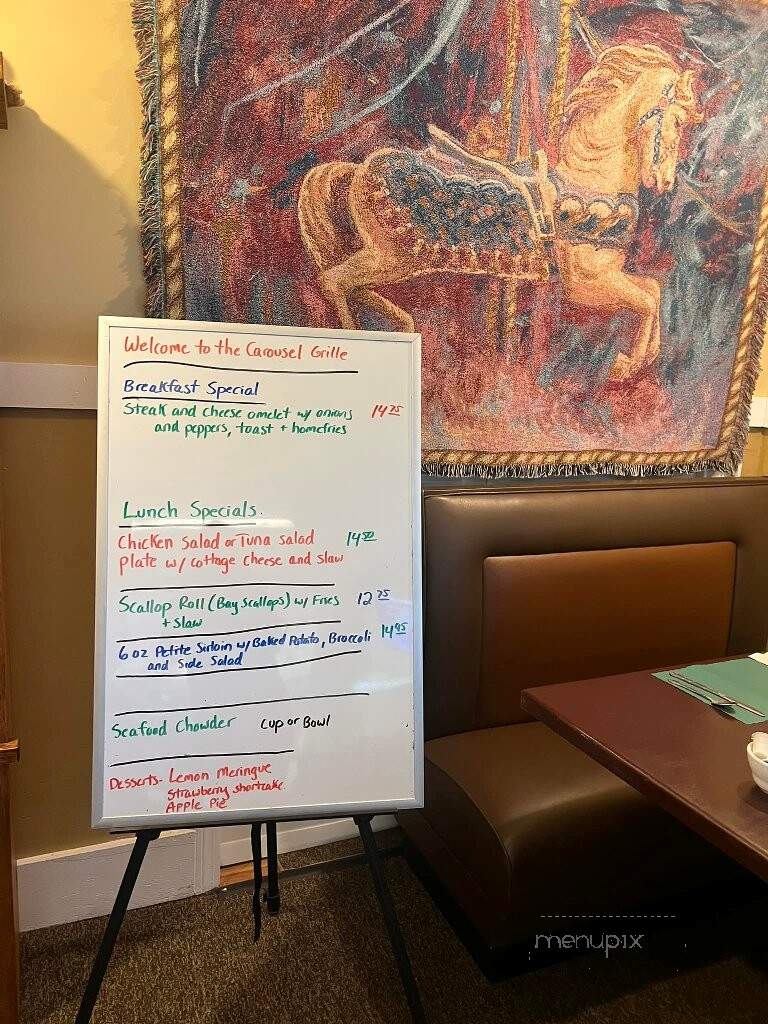 Welcome to the Carousel Grille
Breakfast Special
Steak and cheese omelet w/ onions 14 25
and peppers, toast + homefries
Lunch Specials
Chicken Salad or Tuna salad 14 50
plate w/ cottage cheese and slaw
Scallop Roll (Bay Scallops) w/ Fries 12 75
+ slaw
6 oz Petite Sirloin w/ Baked Potato, Broccoli 14 95
and Side Salad
Seafood Chowder Cup or Bowl
Desserts - Lemon Meringue
Strawberry shortcake
Apple Pie
menupix